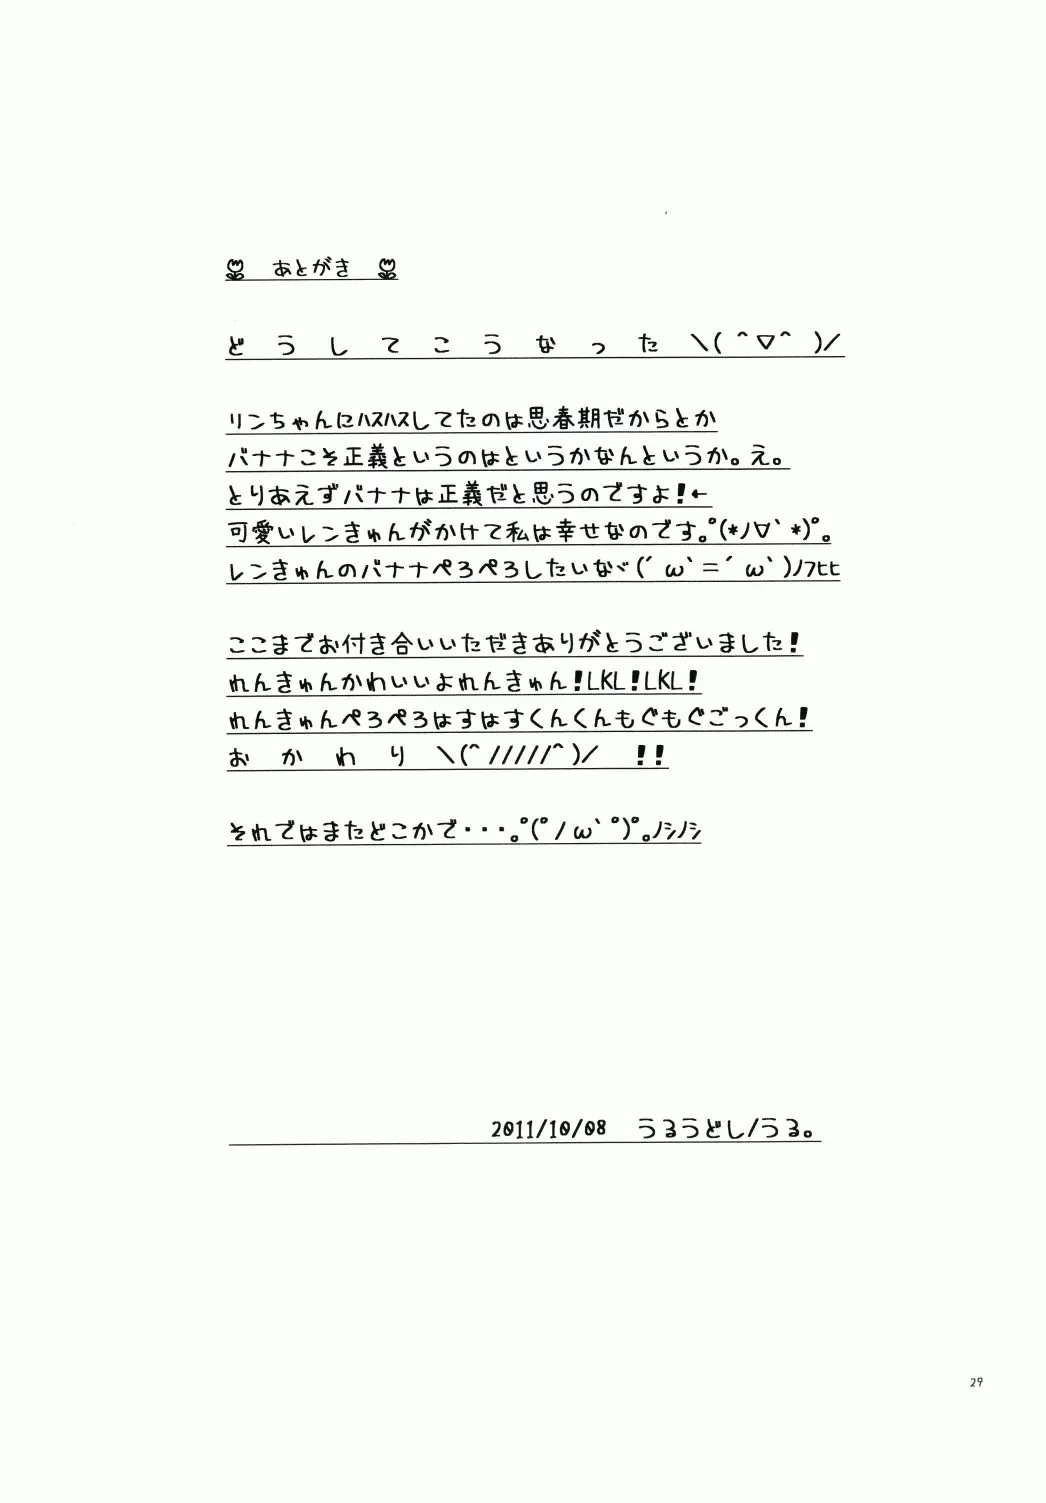 あとがき
どうしてこうなった＼( ^▽^ )／
リンちゃんにﾊｽﾊｽしてたのは思春期だからとか
バナナこそ正義というのはというかなんというか。え。
とりあえずバナナは正義だと思うのですよ！←
可愛いレンきゅんがかけて私は幸せなのです｡ﾟ(*ﾉ∀`*)ﾟ｡
レンきゅんのバナナぺろぺろしたいなヾ(´ω`=´ω`)ﾉﾌﾋﾋ
ここまでお付き合いいただきありがとうございました！
れんきゅんかわいいよれんきゅん！LKL！LKL！
れんきゅんぺろぺろはすはすくんくんもぐもぐごっくん！
おかわり＼(^/////^)／ ！！
それではまたどこかで・・・｡ﾟ(ﾟノω`ﾟ)ﾟ｡ﾉｼﾉｼ
2011/10/08 うるうどし/うる。
29